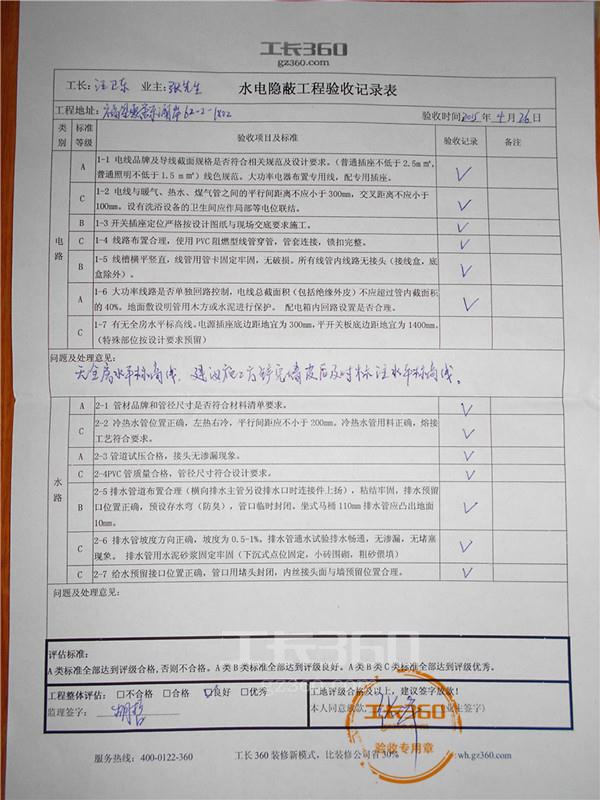 工长360
gz360.com
工长：汪卫东 业主：张先生 水电隐蔽工程验收记录表
工程地址： 62-2-1802 验收时间2015年4月26日
类别 标准等级 验收项目及标准 验收记录 备注
电路
A 1-1 电线品牌及导线截面规格是否符合相关规范及设计要求。（普通插座不低于2.5m㎡，
普通照明不低于1.5m㎡）线色规范。大功率电器布置专用线，配专用插座。 √
C 1-2 电线与暖气、热水、煤气管之间的平行间距离不应小于300mm，交叉距离不应小于
100mm。设有洗浴设备的卫生间应作局部等电位联结。 √
B 1-3 开关插座定位严格按设计图纸与现场交底要求施工。 √
C 1-4 线路布置合理，使用PVC阻燃型线管穿管，管套连接，锁扣完整。 √
B 1-5 线槽横平竖直，线管用管卡固定牢固，无破损。所有线管内线路无接头（接线盒，底
盒除外）。 √
A 1-6 大功率线路是否单独回路控制，电线总截面积（包括绝缘外皮）不应超过管内截面积
的40%。地面敷设明管用木方或水泥进行保护。 配电箱内回路设置是否合理。 √
C 1-7 有无全房水平标高线。电源插座底边距地宜为300mm，平开关板底边距地宜为1400mm。
（特殊部位按设计要求预留）
问题及处理意见：
无全房水平标高线，建议施工方铲完墙皮后及时标注水平标高线。
水路
A 2-1 管材品牌和管径尺寸是否符合材料清单要求。 √
C 2-2 冷热水管位置正确，左热右冷，平行间距应不小于200mm。冷热水管用料正确，熔接
工艺符合要求。 √
A 2-3 管道试压合格，接头无渗漏现象。 √
C 2-4PVC管质量合格，管径尺寸符合设计要求。 √
B 2-5 排水管道布置合理（横向排水主管另设排水口时连接件上扬），粘结牢固，排水预留
口位置正确，预设存水弯（防臭），管口临时封闭，坐式马桶110mm排水管应凸出地面
10mm。 √
C 2-6 排水管坡度方向正确，坡度为0.5-1%。排水管通水试验排水畅通，无渗漏，无堵塞
现象。 排水管用水泥砂浆固定牢固（下沉式点位固定，小砖围砌，粗砂偎填） √
C 2-7 给水预留接口位置正确，管口用堵头封闭，内丝接头面与墙预留位置合理。 √
问题及处理意见：
工长360
gz360.com
评估标准：
A类标准全部达到评级合格，否则不合格。A类B类标准全部达到评级良好。A类B类C类标准全部达到评级优秀。
工程整体评估： □不合格 □合格 ☑良好 □优秀 工地评级合格及以上，建议签字放款！
监理签字：胡哲 本人同意放款， （业主签字）
工长360
验收专用章
服务热线：400-0122-360 工长360装修新模式，比装修公司省30% wh.gz360.com